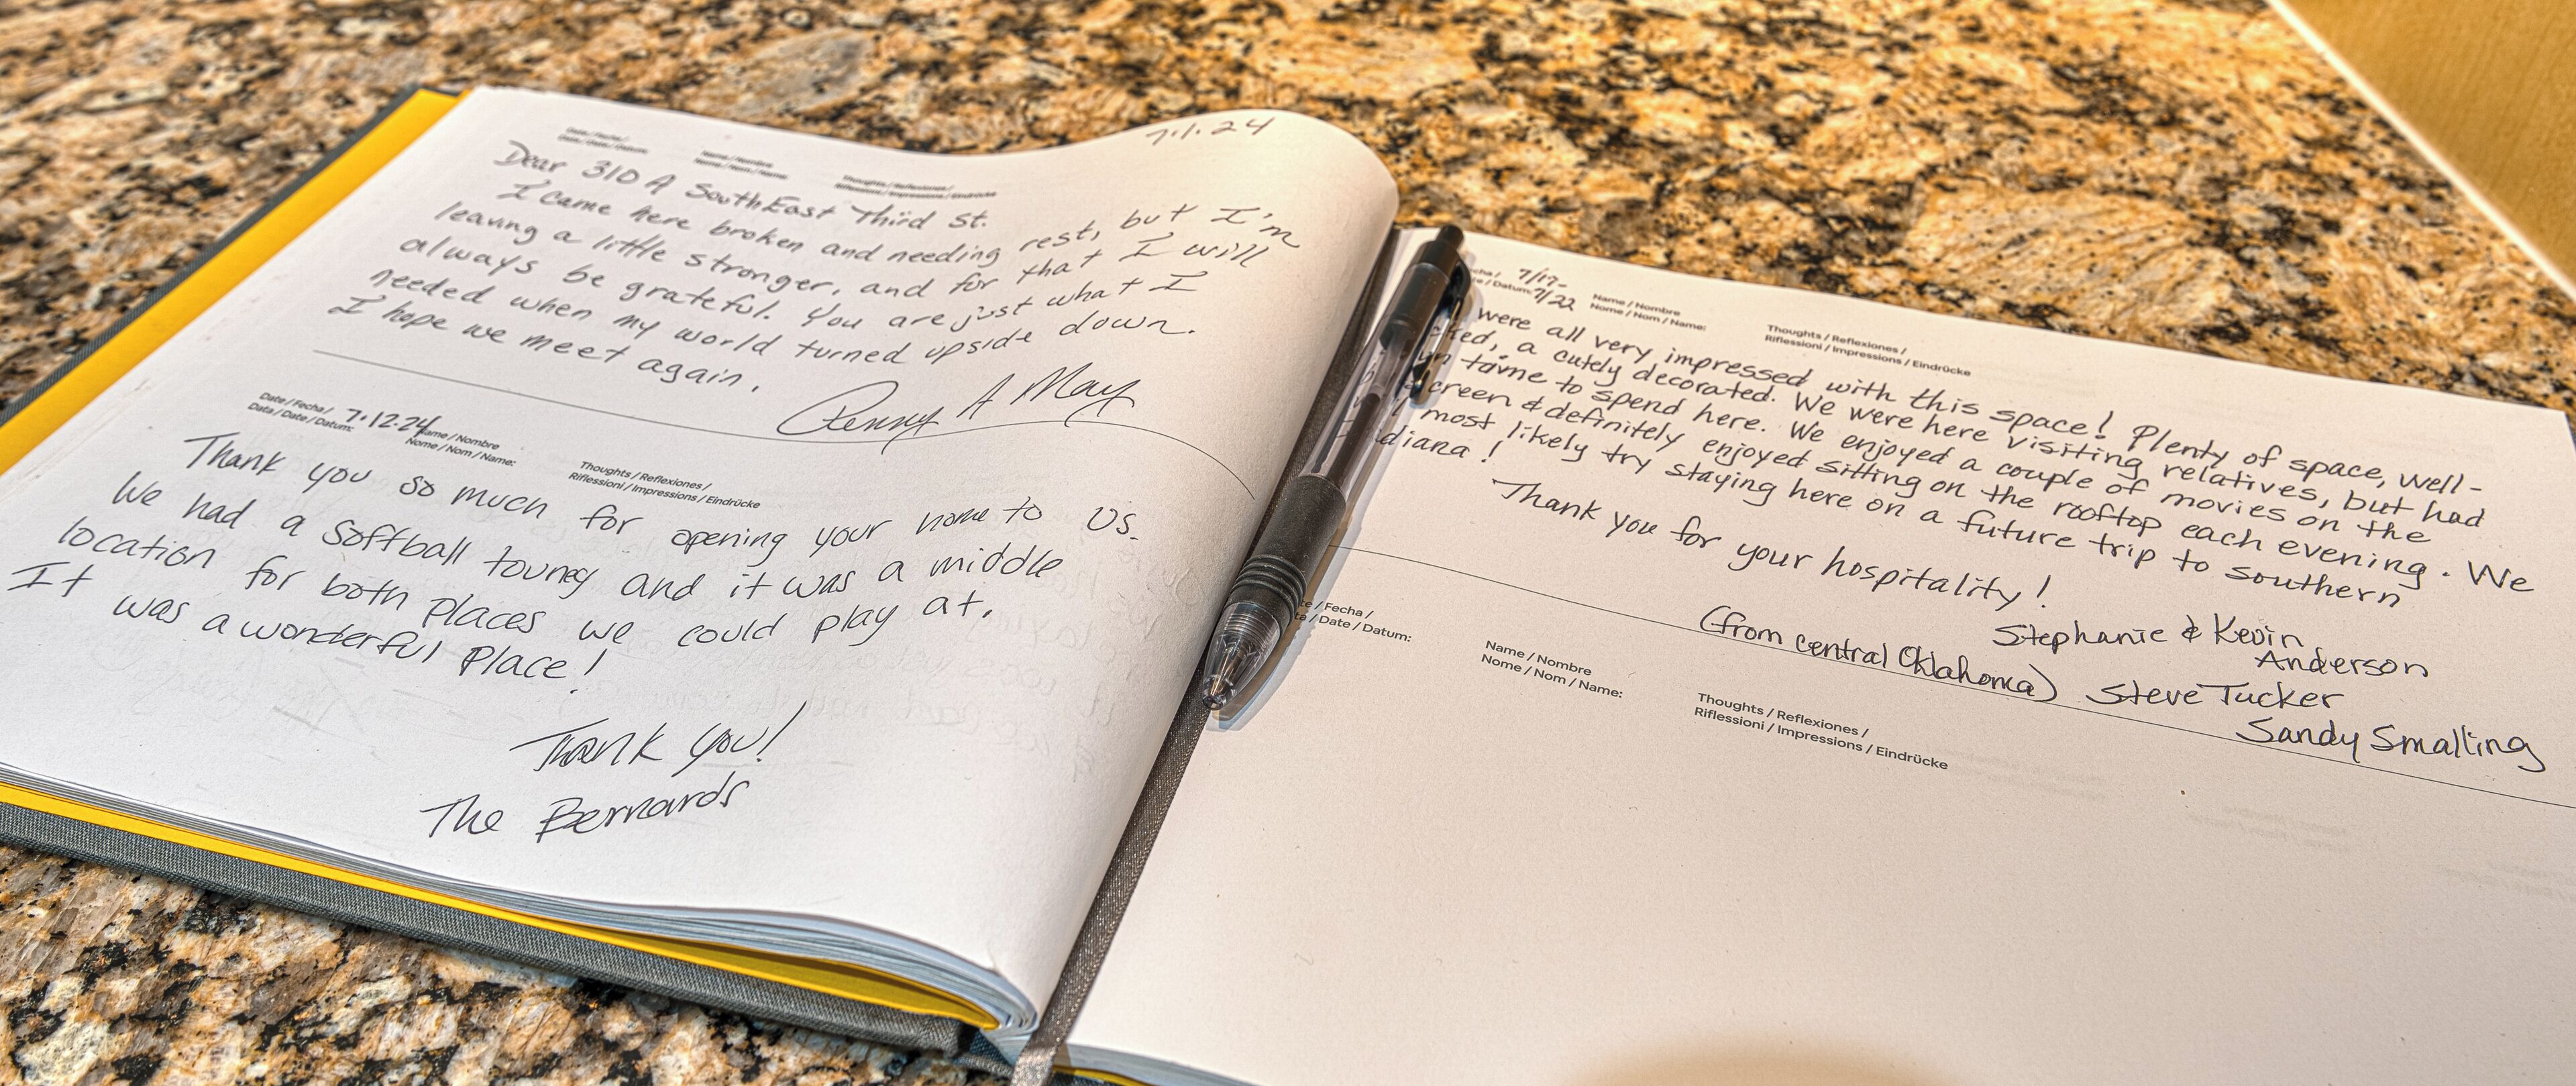 7.1.24
Date / Fecha /
Data / Date / Datum:
Name / Nombre
Nome / Nom / Name:
Thoughts / Reflexiones /
Riflessioni / Impressions / Eindrücke
Dear 310 A SouthEast Third St.
I came here broken and needing rest, but I'm
leaving a little stronger, and for that I will
always be grateful. You are just what I
needed when my world turned upside down.
I hope we meet again.
Penny A May
Date / Fecha /
Data / Date / Datum: 7.12.24
Name / Nombre
Nome / Nom / Name:
Thoughts / Reflexiones /
Riflessioni / Impressions / Eindrücke
Thank you so much for opening your home to us.
We had a softball touney and it was a middle
location for both places we could play at.
It was a wonderful place!
Thank you!
The Bernards
7/17-
Datum: 7/22
Name / Nombre
Nome / Nom / Name:
Thoughts / Reflexiones /
Riflessioni / Impressions / Eindrücke
were all very impressed with this space! Plenty of space, well-
ked, a cutely decorated. We were here visiting relatives, but had
un time to spend here. We enjoyed a couple of movies on the
creen & definitely enjoyed sitting on the rooftop each evening. We
most likely try staying here on a future trip to southern
diana!
Thank you for your hospitality!
Stephanie & Kevin
Anderson
(from central Oklahoma) Steve Tucker
Sandy Smalling
te / Fecha /
ta / Date / Datum:
Name / Nombre
Nome / Nom / Name:
Thoughts / Reflexiones /
Riflessioni / Impressions / Eindrücke